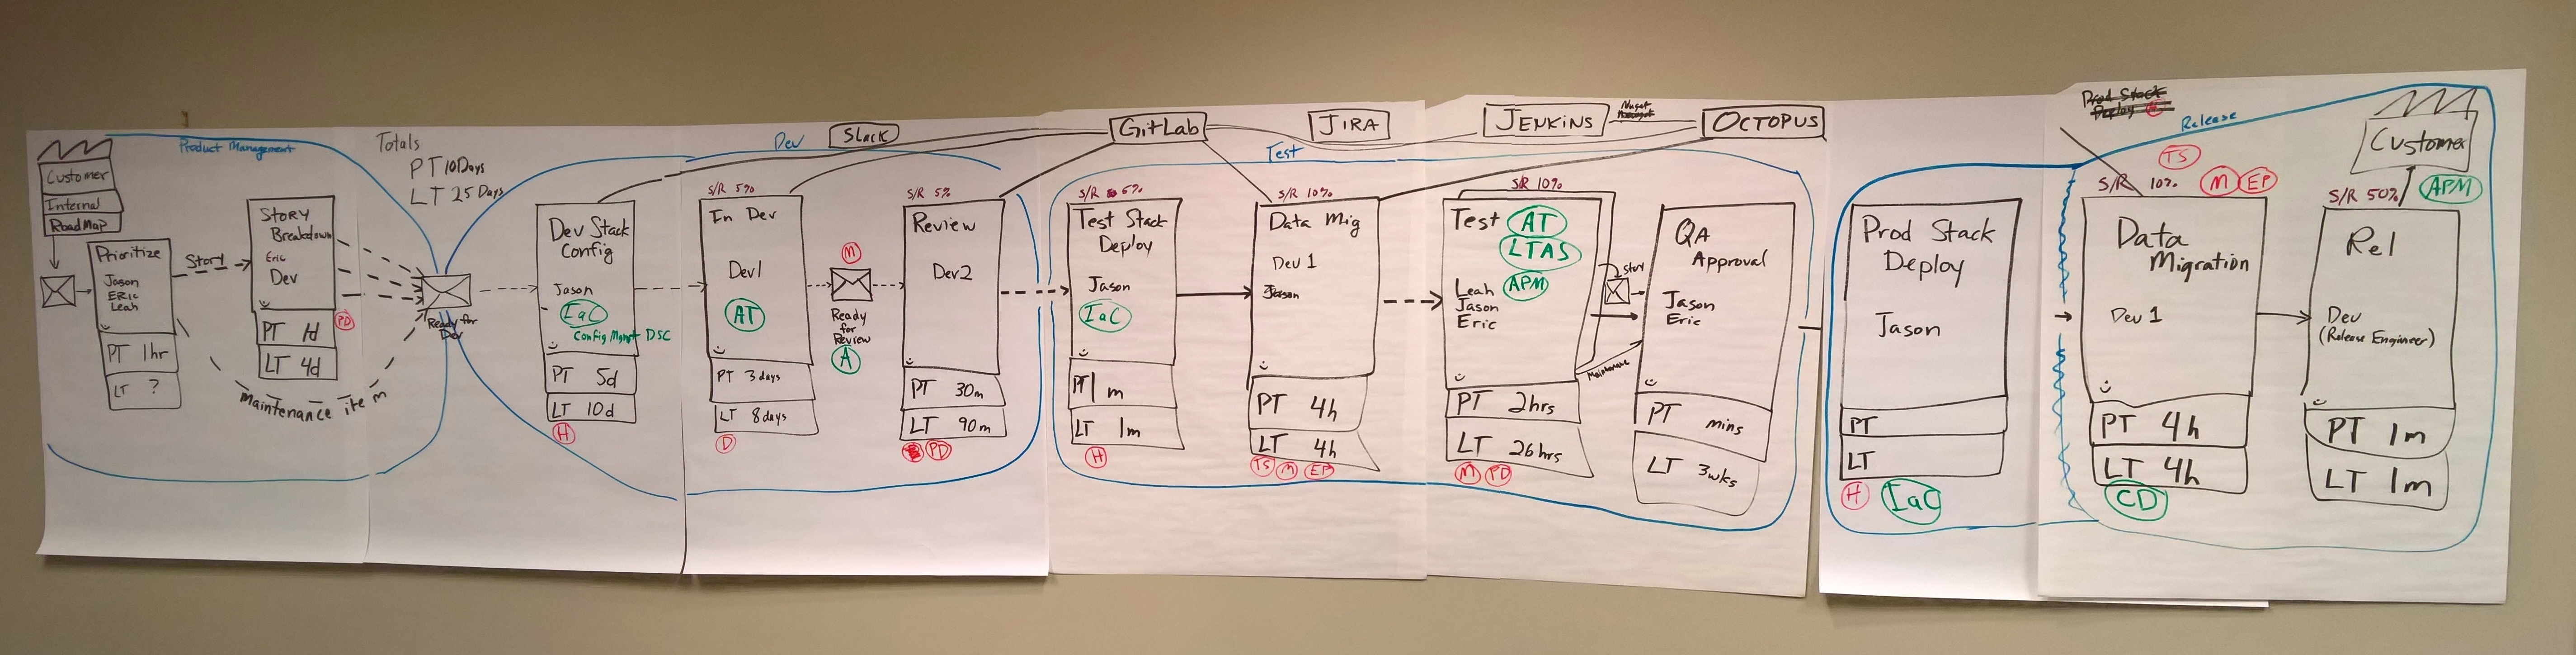 Customer
Internal
RoadMap
Product Management
Prioritize
Jason
ERIC
Leah
PT 1hr
LT ?
Story
STORY
Breakdown
Eric
Dev
PT 1d
LT 4d
PD
Maintenance item
Totals
PT 10Days
LT 25 Days
Ready for
Dev
Dev
Slack
Dev Stack
Config
Jason
IaC
Config Mgmt DSC
PT 5d
LT 10d
H
S/R 5%
In Dev
Dev1
AT
PT 3 days
LT 8days
D
M
Ready
for
Review
A
S/R 5%
Review
Dev2
PT 30m
LT 90m
PD
GitLab
JIRA
JENKINS
OCTOPUS
Test
S/R 5%
Test Stack
Deploy
Jason
IaC
PT 1m
LT 1m
H
S/R 10%
Data Mig
Dev 1
Jason
PT 4h
LT 4h
TS M EP
S/R 10%
Test AT
LTAS
APM
Leah
Jason
Eric
PT 2hrs
LT 26hrs
M PD
Story
Maintenance
QA
Approval
Jason
Eric
PT mins
LT 3wks
Prod Stack
Deploy
Jason
PT
LT
H IaC
Prod Stack
Deploy
Release
TS
S/R 10% M EP
Data
Migration
Dev 1
PT 4h
LT 4h
CD
Customer
S/R 50% APM
Rel
Dev
(Release Engineer)
PT 1m
LT 1m